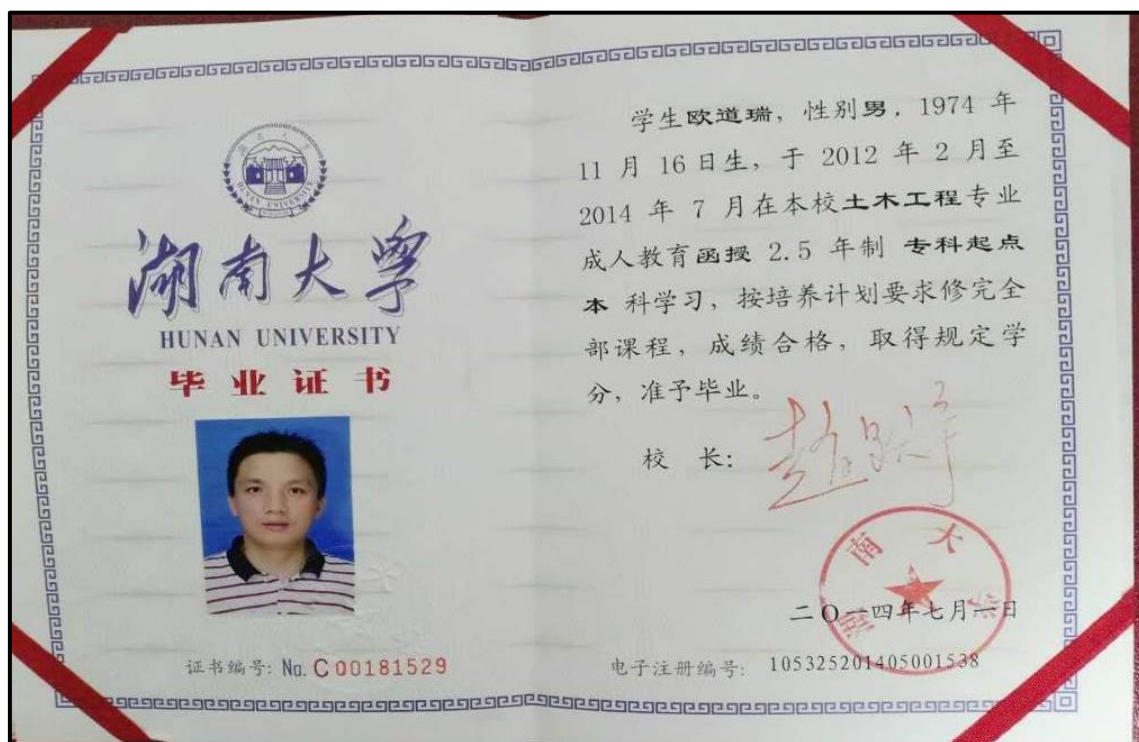 湖南大学
HUNAN UNIVERSITY
湖南大學
HUNAN UNIVERSITY
毕业证书
证书编号: No. C00181529
学生欧道瑞, 性别男, 1974 年
11 月 16日生, 于 2012 年 2 月至
2014 年 7 月在本校土木工程专业
成人教育函授 2.5 年制 专科起点
本 科学习, 按培养计划要求修完全
部课程, 成绩合格, 取得规定学
分, 准予毕业。
校 长:
湖南大学
二〇一四年七月一日
电子注册编号: 105325201405001538